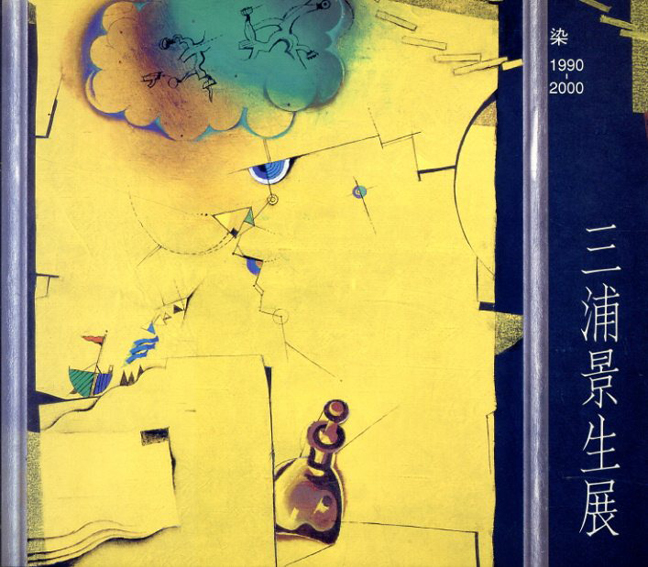 染
1990
-
2000
三浦景生展